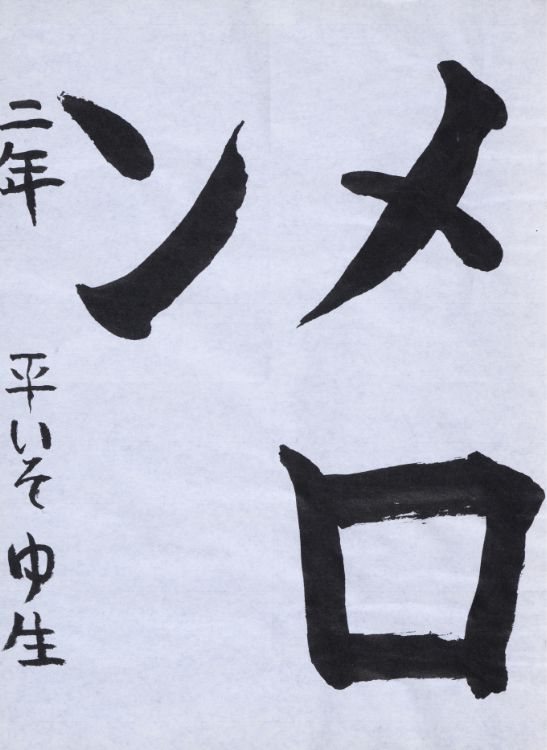 メロ
ン
二年 平いそ ゆ生